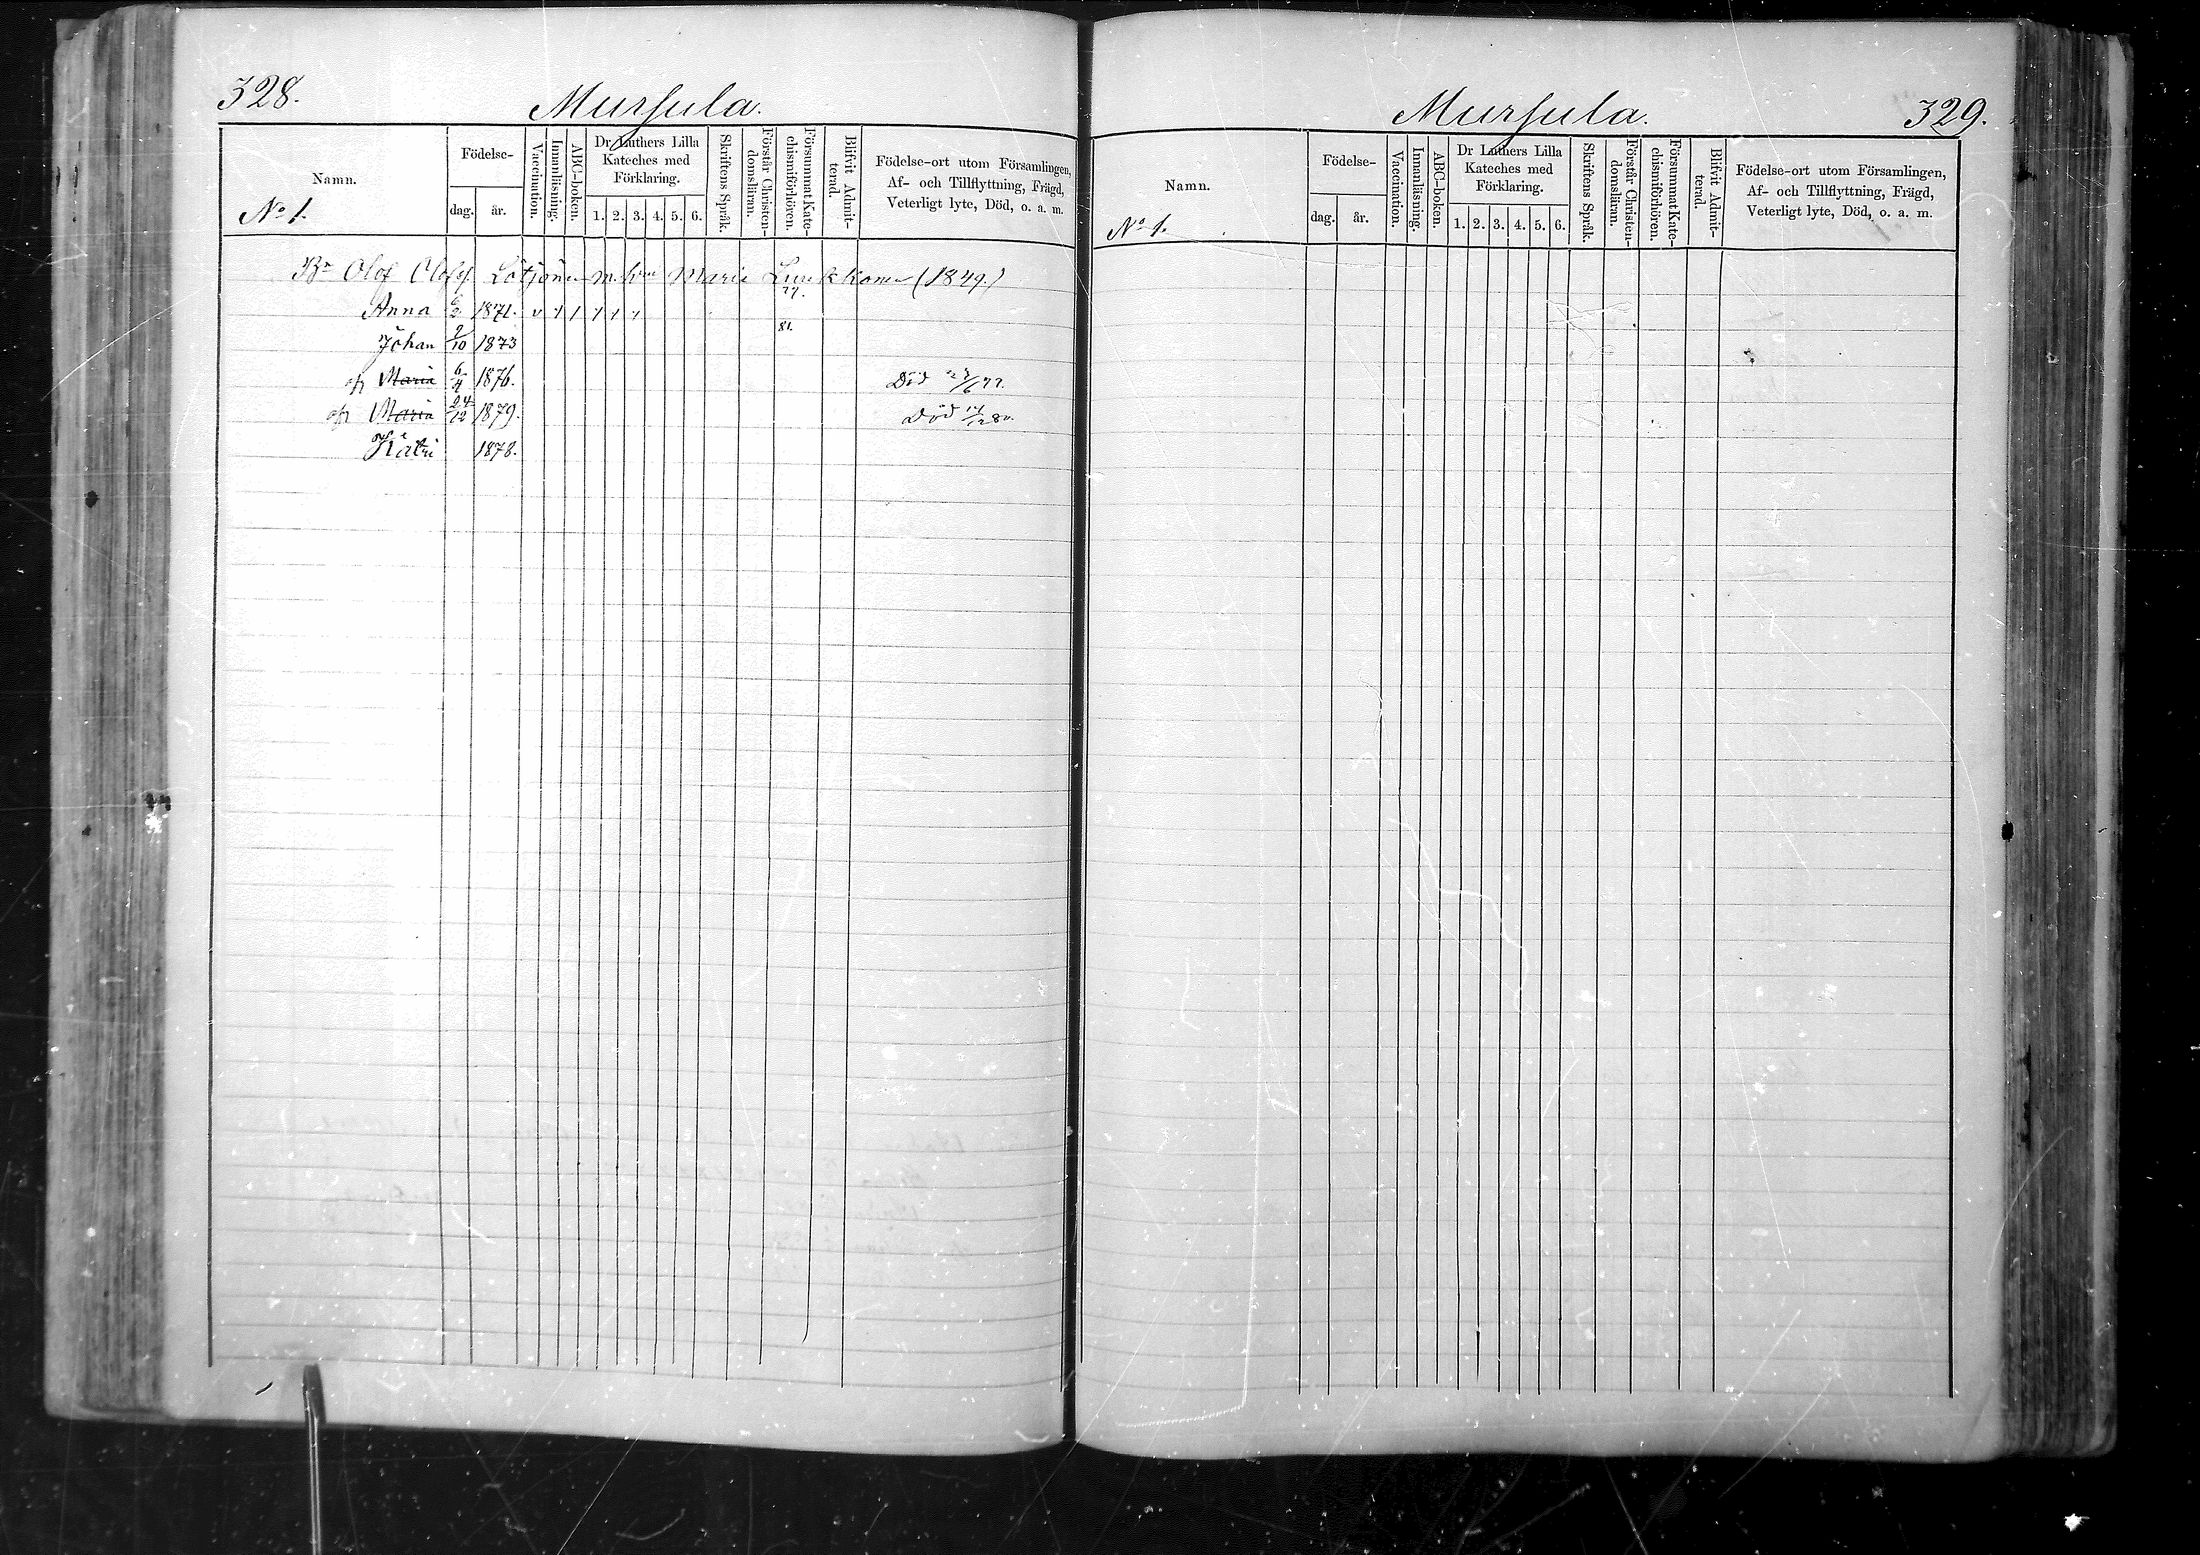 328.
Mursula.
Namn.
Födelse-
dag.
år.
Vaccination.
Innanläsning.
ABC-boken.
Dr Luthers Lilla
Kateches med
Förklaring.
1. 2. 3. 4. 5. 6.
Skriftens Språk.
Förstår Christen-
domsläran.
Försummat Kate-
chismiförhören.
Blifvit Admit-
terad.
Födelse-ort utom Församlingen,
Af- och Tillflyttning, Frägd,
Veterligt lyte, Död, o. a. m.
No 1.
Bn Olof Olofss. Lötjönen m. hu Maria Luukkonen (1849.)
77.
Anna 6/2 1871. v 1 1 1 1 1
81.
Johan 2/10 1873
Maria 6/4 1876. Död 23/6 77.
Maria 24/12 1879. Död 14/12 80.
Kätri 1878.
Mursula.
329.
Namn.
Födelse-
dag.
år.
Vaccination.
Innanläsning.
ABC-boken.
Dr Luthers Lilla
Kateches med
Förklaring.
1. 2. 3. 4. 5. 6.
Skriftens Språk.
Förstår Christen-
domsläran.
Försummat Kate-
chismiförhören.
Blifvit Admit-
terad.
Födelse-ort utom Församlingen,
Af- och Tillflyttning, Frägd,
Veterligt lyte, Död, o. a. m.
No 1.